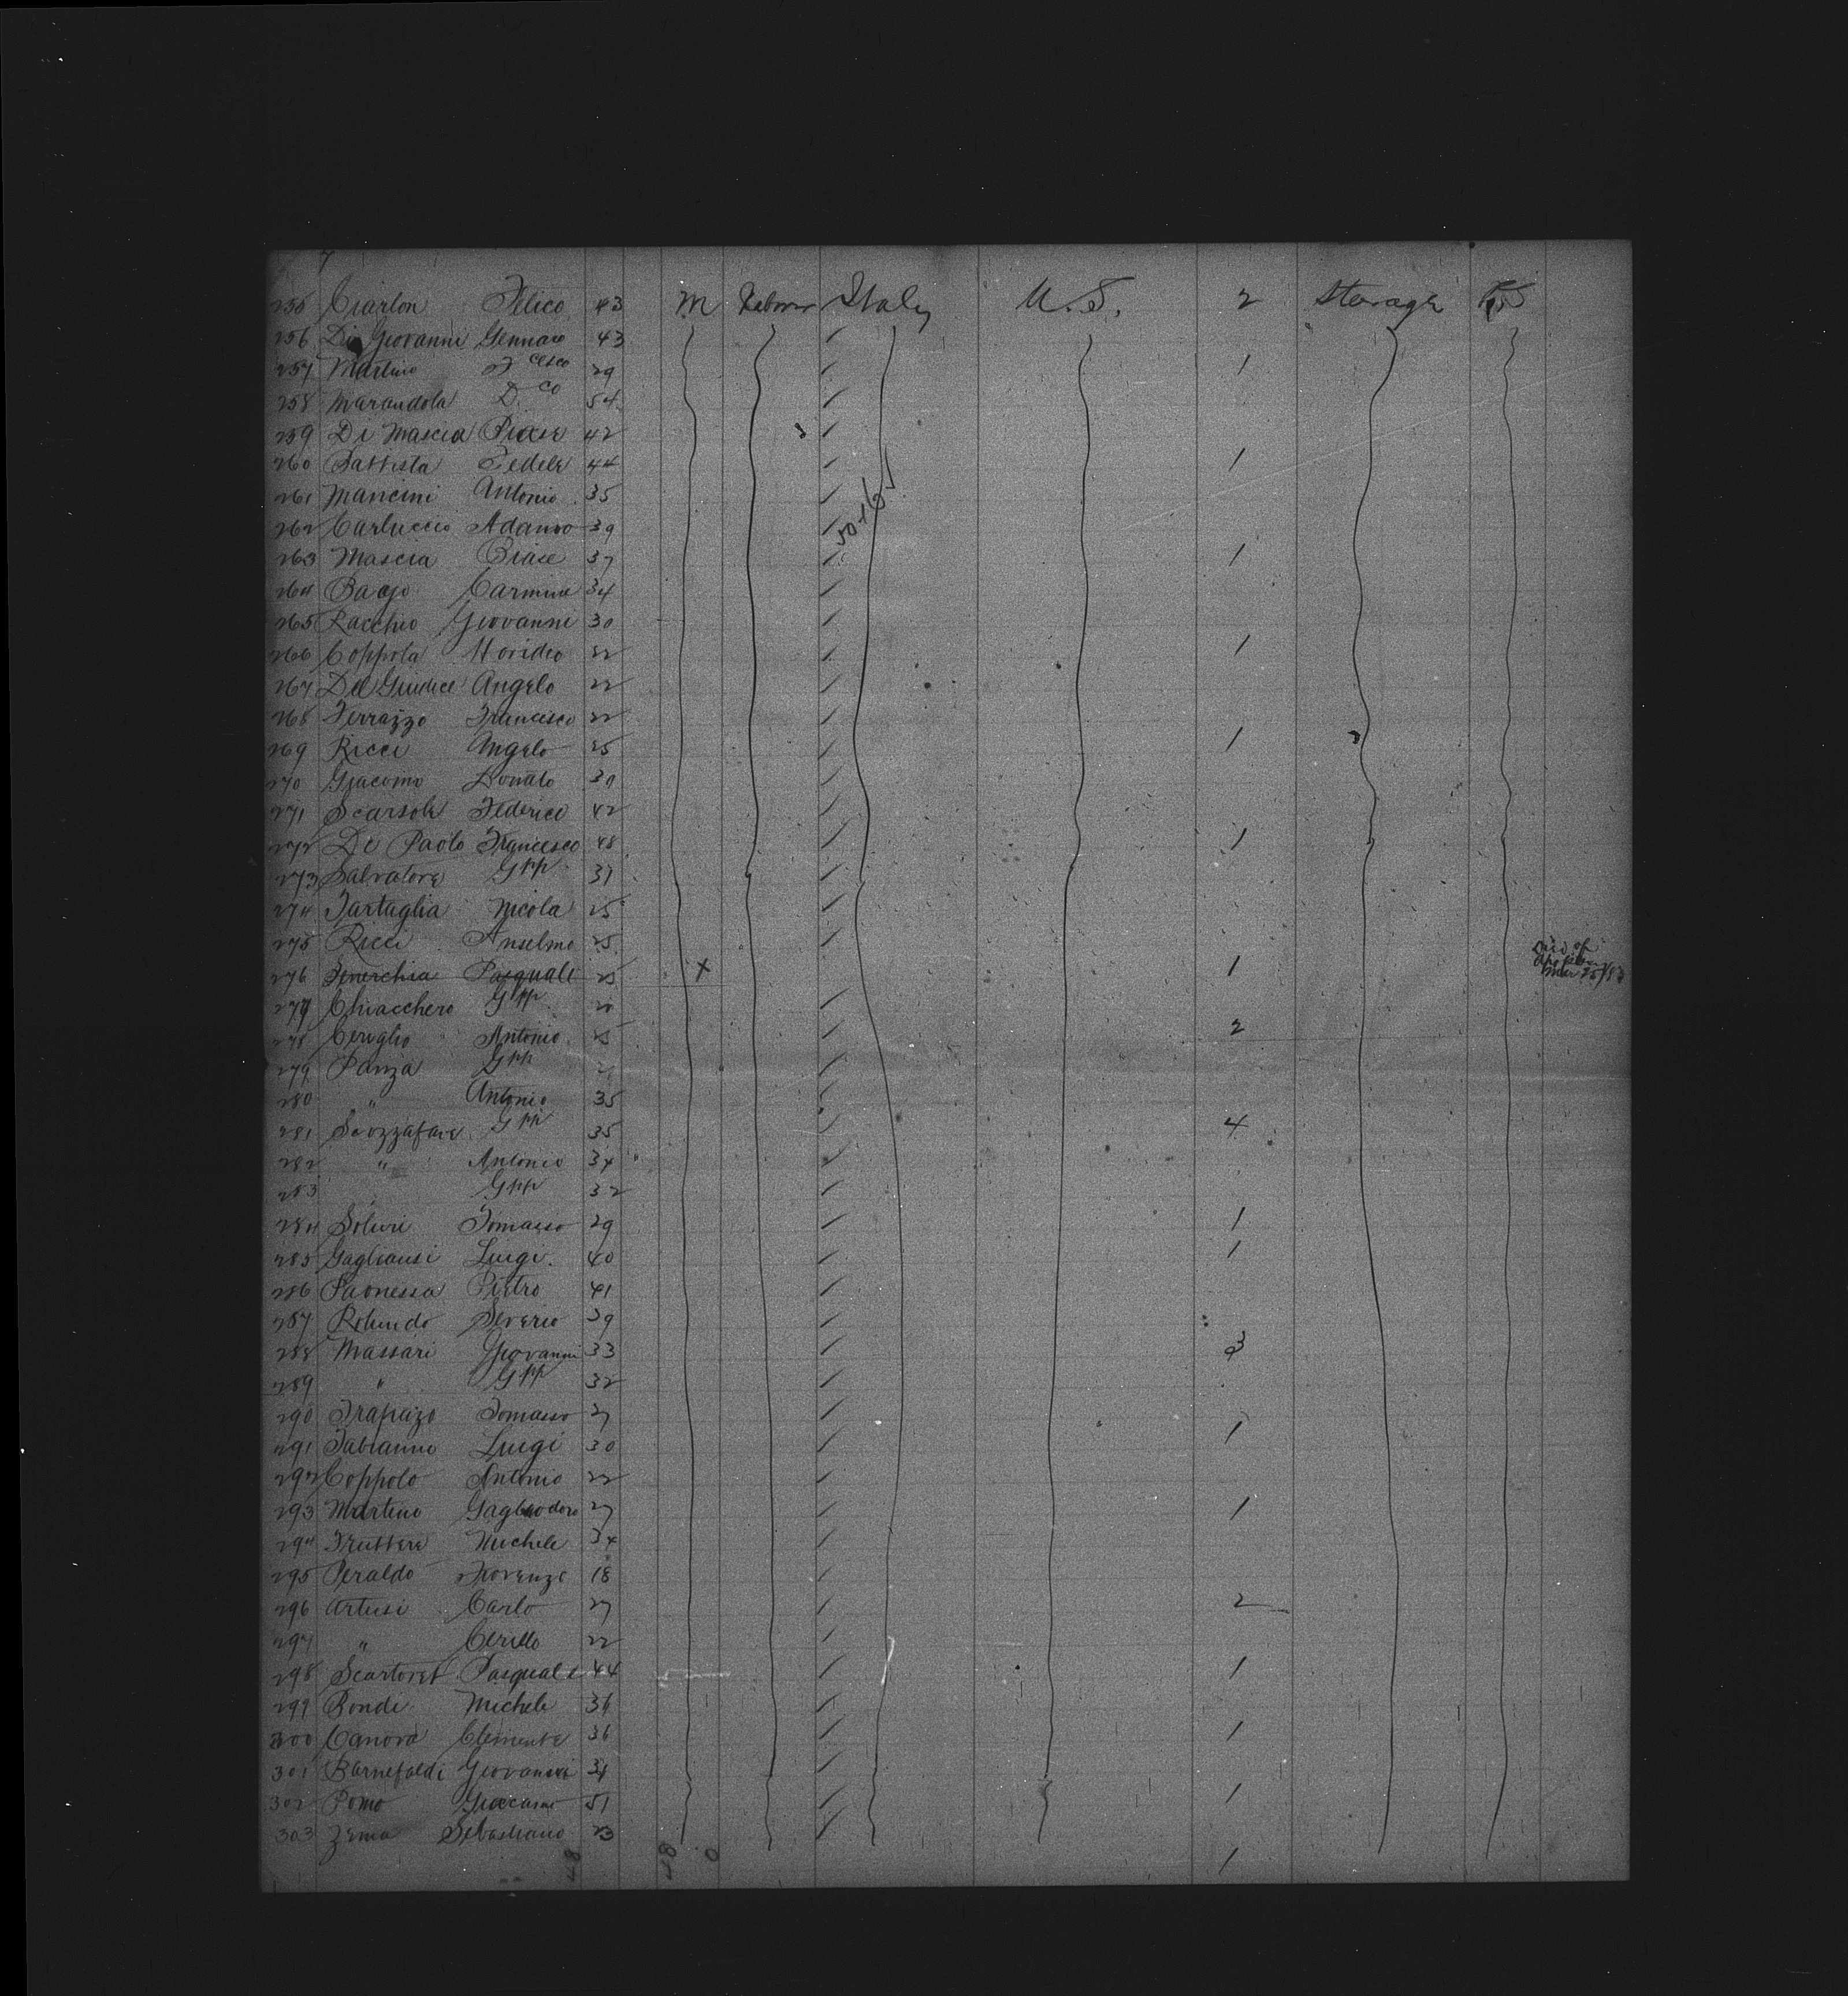 255 Ciarlon Felico 43 M Laborer Italy U.S. 2 Steerage P.S
256 Di Giovanni Gennaro 43
257 Martino Fcesco 29 1
258 Marandola D.co 54
259 Di Mascia 42
260 Battista Fedele 44 1
261 Mancini Antonio 35
262 Carluccio Adamo 39
263 Mascia Biase 37 1
264 Carmine 34
265 Racchio Giovanni 30
266 Coppola 22 1
267 Del Giudice Angelo 22
268 Ferrazzo Francesco 22
269 Ricci Angelo 25 1
270 Giacomo Donato 30
271 Scarsole Federico 42
272 Di Paolo Francesco 48 1
273 Salvatore Gpp 37
274 Tartaglia Nicola 25
275 Ricci Anselmo 25
276 Pasquale 25 X 1
277 Chiacchero Gpp
278 Ceriglio Antonio 25 2
279 Panza Gpp
280 " Antonio 35
281 Scozzafave Gpp 35 4
282 " Antonio 34
283 Gpp 32
284 Soluri Tomasso 29 1
285 Gagliansi Luigi. 40 1
286 Paonessa Pietro 41
287 Rotundo Severio 39
288 Massari Giovanni 33 3
289 " Gpp 32
290 Trapazo Tomasso 27
291 Fabianno Luigi 30 1
292 Coppolo Antonio 22
293 Martino Gagliodoro 27 1
294 Truttere Michele 34
295 Peraldo Fiorenzo 18
296 Artusi Carlo 27 2
297 " Cirillo 22
298 Pasquale 44 1
299 Bonde Michele 36
300 Canova Clemente 36 1
301 Giovanni 31
302 Pomo Giacomo 51 1
303 Zema Sebastiano 23
1